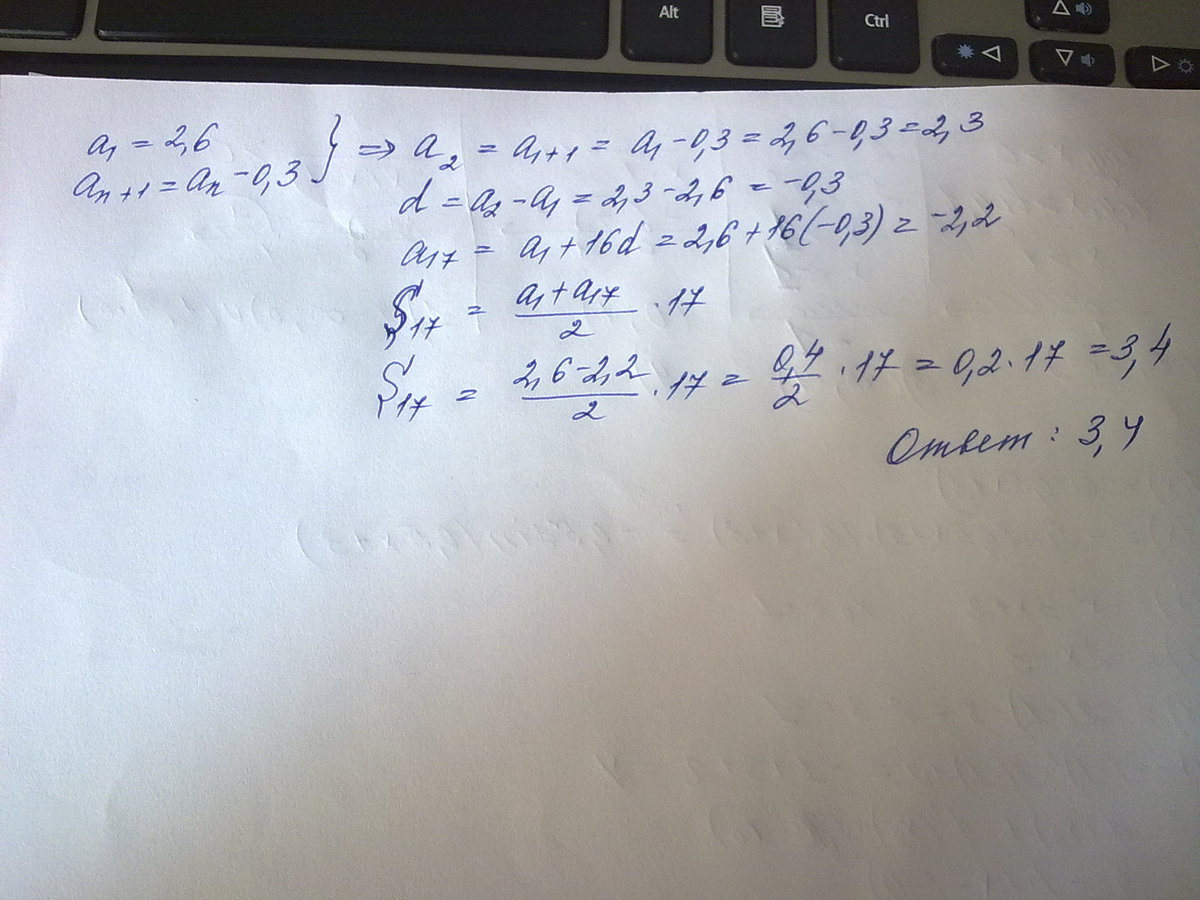 Alt
Ctrl
a₁ = 2,6
aₙ₊₁ = aₙ − 0,3 } ⇒ a₂ = a₁₊₁ = a₁ − 0,3 = 2,6 − 0,3 = 2,3
d = a₂ − a₁ = 2,3 − 2,6 = −0,3
a₁₇ = a₁ + 16d = 2,6 + 16(−0,3) = −2,2
S₁₇ = (a₁ + a₁₇)/2 · 17
S₁₇ = (2,6 − 2,2)/2 · 17 = 0,4/2 · 17 = 0,2 · 17 = 3,4
Ответ : 3,4